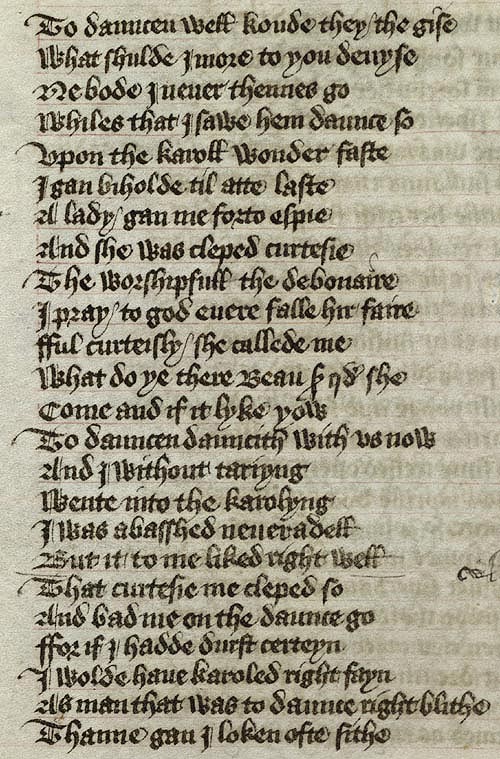 To dauncen well koude they the gise
What shulde I more to you deuyse
Ne bode I neuer thennes go
Whiles that I sawe hem daunce so
Vpon the karoll wonder faste
I gan biholde til atte laste
A lady gan me forto espie
And she was cleped curtesie
The worshipfull the debonaire
I pray to god euere falle hir faire
fful curteisly she callede me
What do ye there Beau ꝑ qd she
Come and if it lyke yow
To dauncen dauncith with vs now
And I without tariyng
Wente into the karolyng
I was abasshed neueradell
But it to me liked right well
That curtesie me cleped so
And bad me on the daunce go
ffor if I hadde durst certeyn
I wolde haue karoled right fayn
As man that was to daunce right blithe
Thanne gan I loken ofte sithe